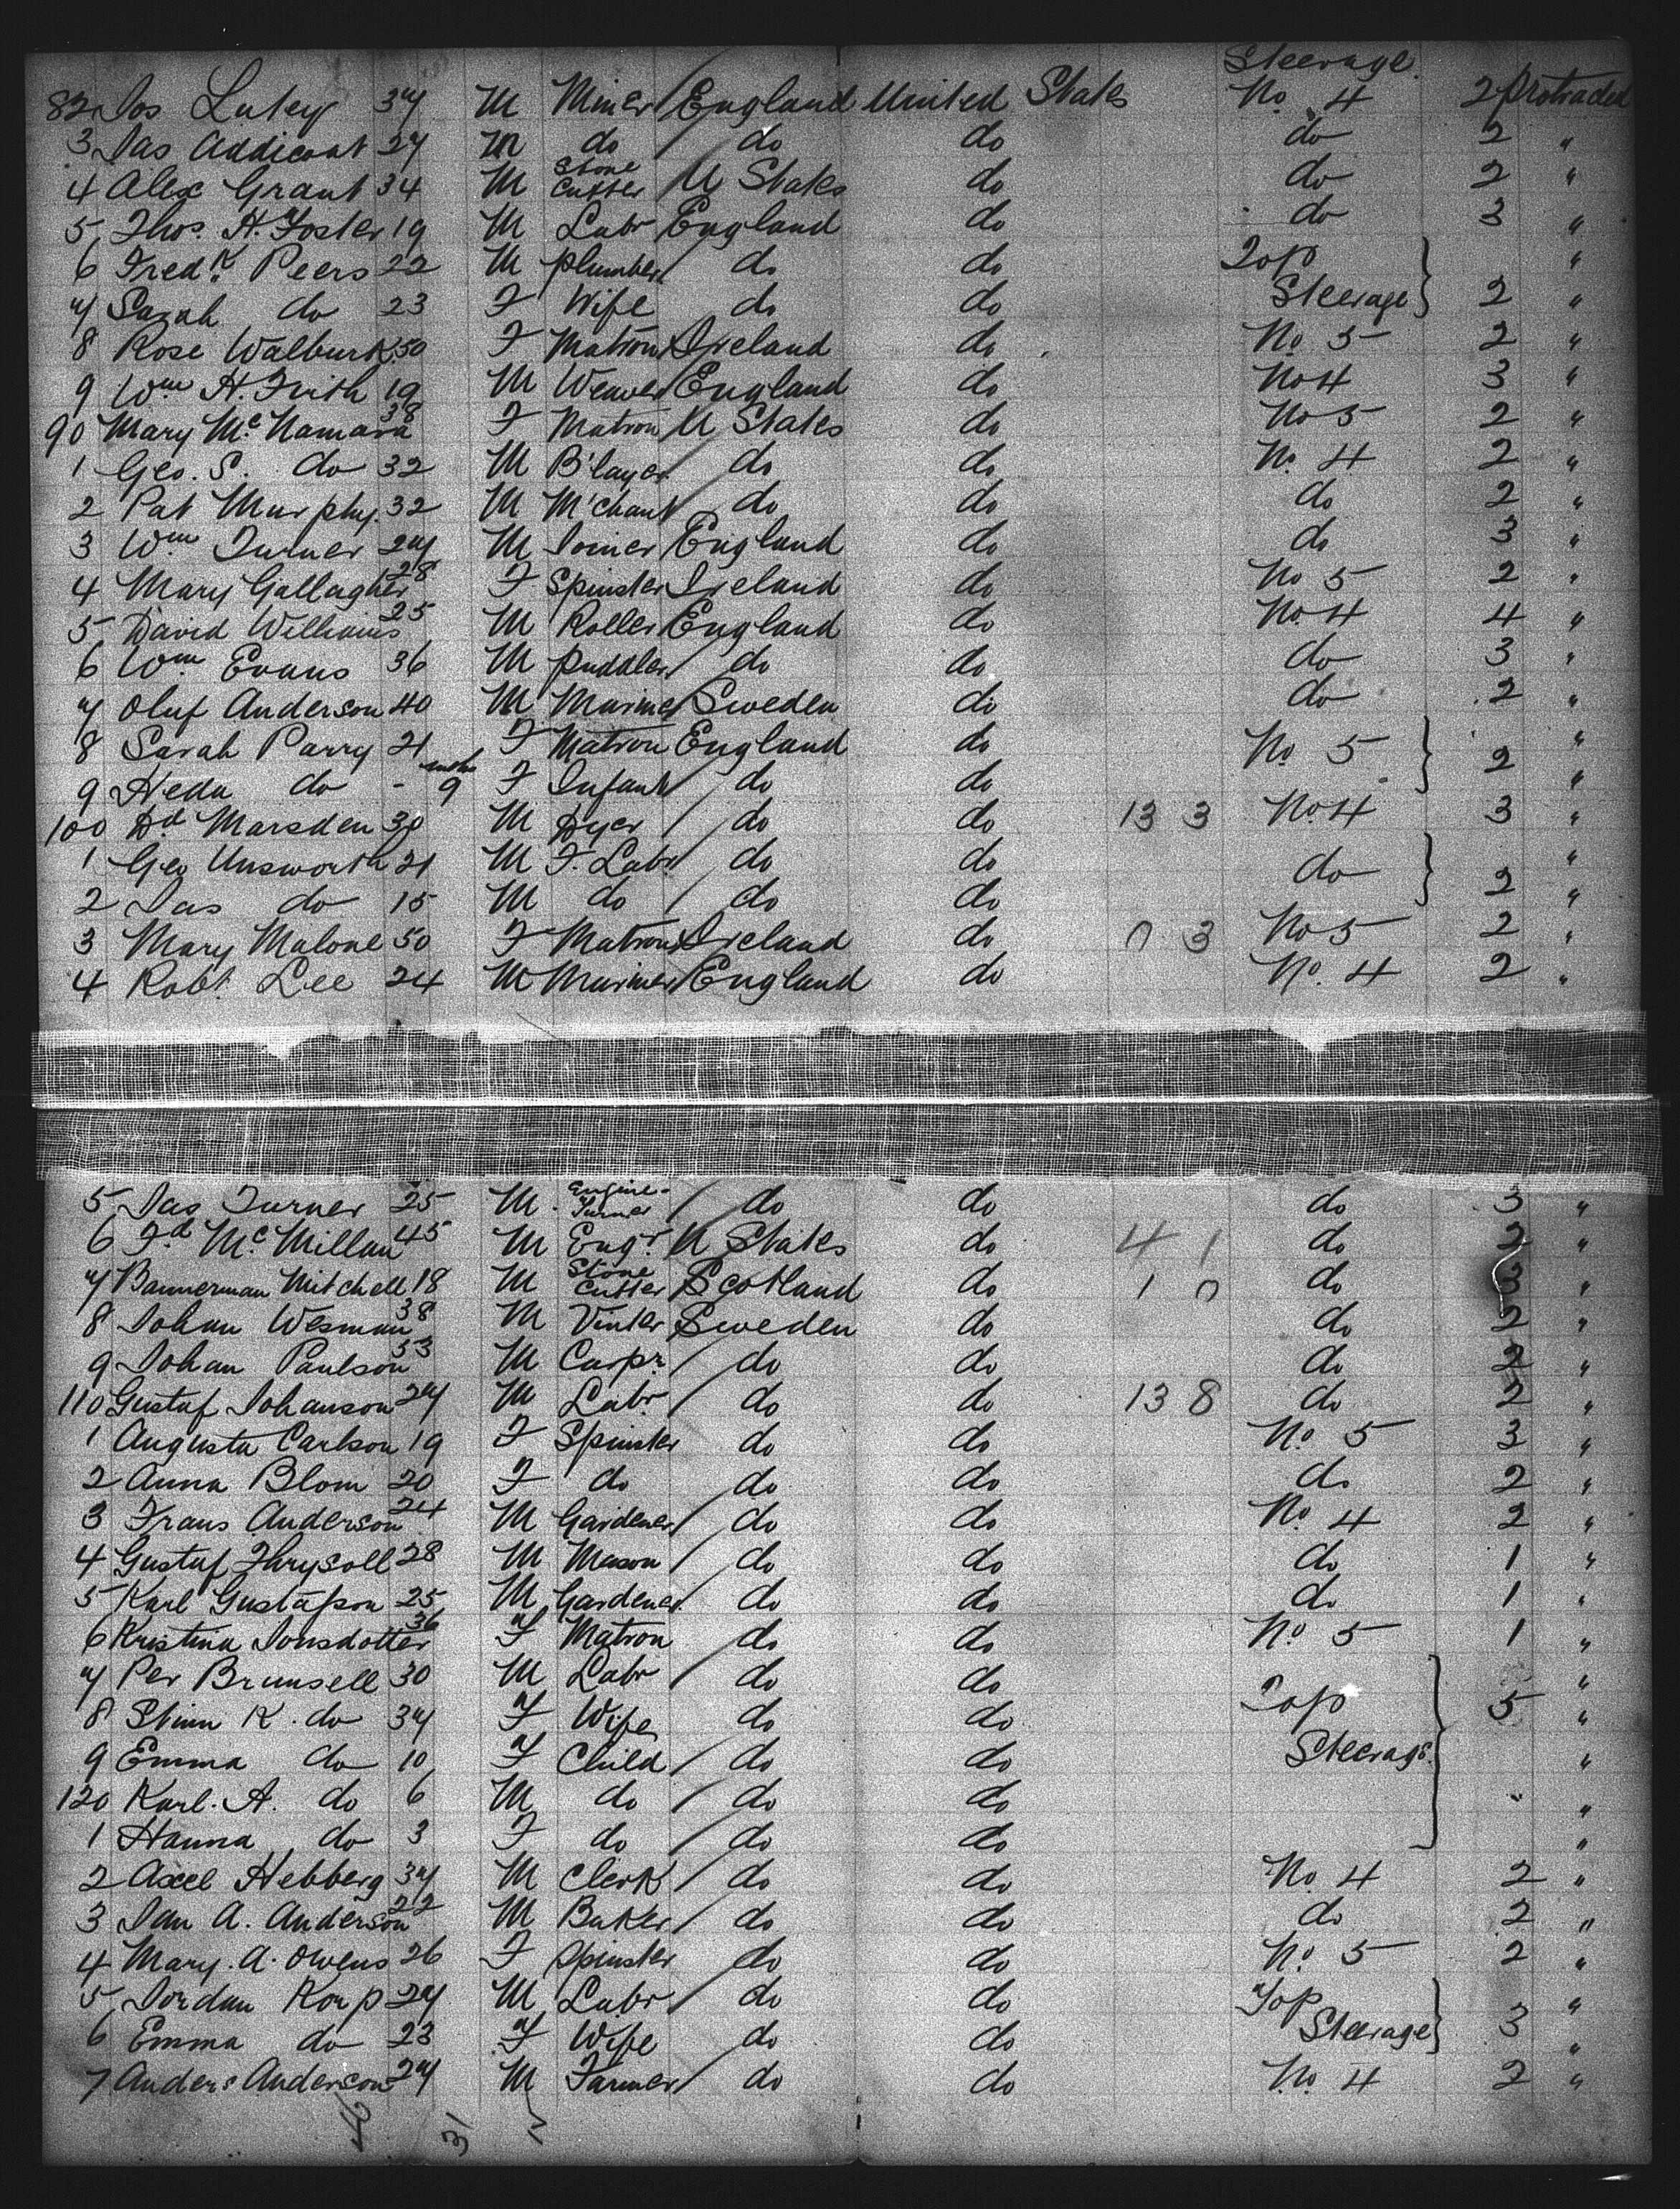 Steerage.
82 Jas Lukey 37 M Miner England United States No. 4 2 Protracted
3 Jas Addicoat 27 M do do do do 2 "
4 Alex Grant 34 M Stone Cutter U States do do 2 "
5 Thos. H. Foster 19 M Labr England do do 3 "
6 Fredk. Peers 22 M Plumber do do Top "
7 Sarah do 23 F Wife do do Steerage 2 "
8 Rose Walburk 50 F Matron Ireland do No 5 2 "
9 Wm H. Frith 19 M Weaver England do No 4 3 "
90 Mary McNamara 38 F Matron U States do No 5 2 "
1 Geo. S. do 32 M B'layer do do No. 4 2 "
2 Pat Murphy 32 M M'chant do do do 2 "
3 Wm Turner 27 M Joiner England do do 3 "
4 Mary Gallagher 28 F Spinster Ireland do No 5 2 "
5 David Williams 25 M Roller England do No. 4 4 "
6 Wm Evans 36 M Puddler do do do 3 "
7 Oluf Anderson 40 M Mariner Sweden do do 2 "
8 Sarah Parry 21 F Matron England do No 5 "
9 Heda do - 9 mths F Infant do do 2 "
100 Dd Marsden 30 M Dyer do do 13 3 No. 4 3 "
1 Geo Unsworth 21 M F. Labr do do do "
2 Jas do 15 M do do do 2 "
3 Mary Malone 50 F Matron Ireland do 0 3 No 5 2 "
4 Robt. Lee 24 M Mariner England do No. 4 2 "
5 Jas Turner 25 M Engine-Turner do do do 3 "
6 Fd McMillan 45 M Engr. U States do 4 1 do 2 "
7 Bannerman Mitchell 18 M Stone Cutter Scotland do 1 0 do 3 "
8 Johan Wesman 38 M Vinter Sweden do do 2 "
9 Johan Paulson 33 M Carpr. do do do 2 "
110 Gustaf Johanson 27 M Labr do do 13 8 do 2 "
1 Augusta Carlson 19 F Spinster do do No 5 3 "
2 Anna Blom 20 F do do do do 2 "
3 Frans Anderson 24 M Gardener do do No. 4 2 "
4 Gustaf Thrysoll 28 M Mason do do do 1 "
5 Karl Gustafson 25 M Gardener do do do 1 "
6 Kristina Jonsdotter 36 F Matron do do No 5 1 "
7 Per Brunsell 30 M Labr do do "
8 Stina K. do 37 F Wife do do Top 5 "
9 Emma do 10 F Child do do Steerage. "
120 Karl. A. do 6 M do do do " "
1 Hanna do 3 F do do do "
2 Axel Hebberg 37 M Clerk do do No. 4 2 "
3 Jan A. Anderson 22 M Baker do do do 2 "
4 Mary. A. Owens 26 F Spinster do do No. 5 2 "
5 Jordan Korp 27 M Labr do do Top "
6 Emma do 23 F Wife do do Steerage 3 "
7 Anders Anderson 27 M Farmer do do No. 4 2 "
31